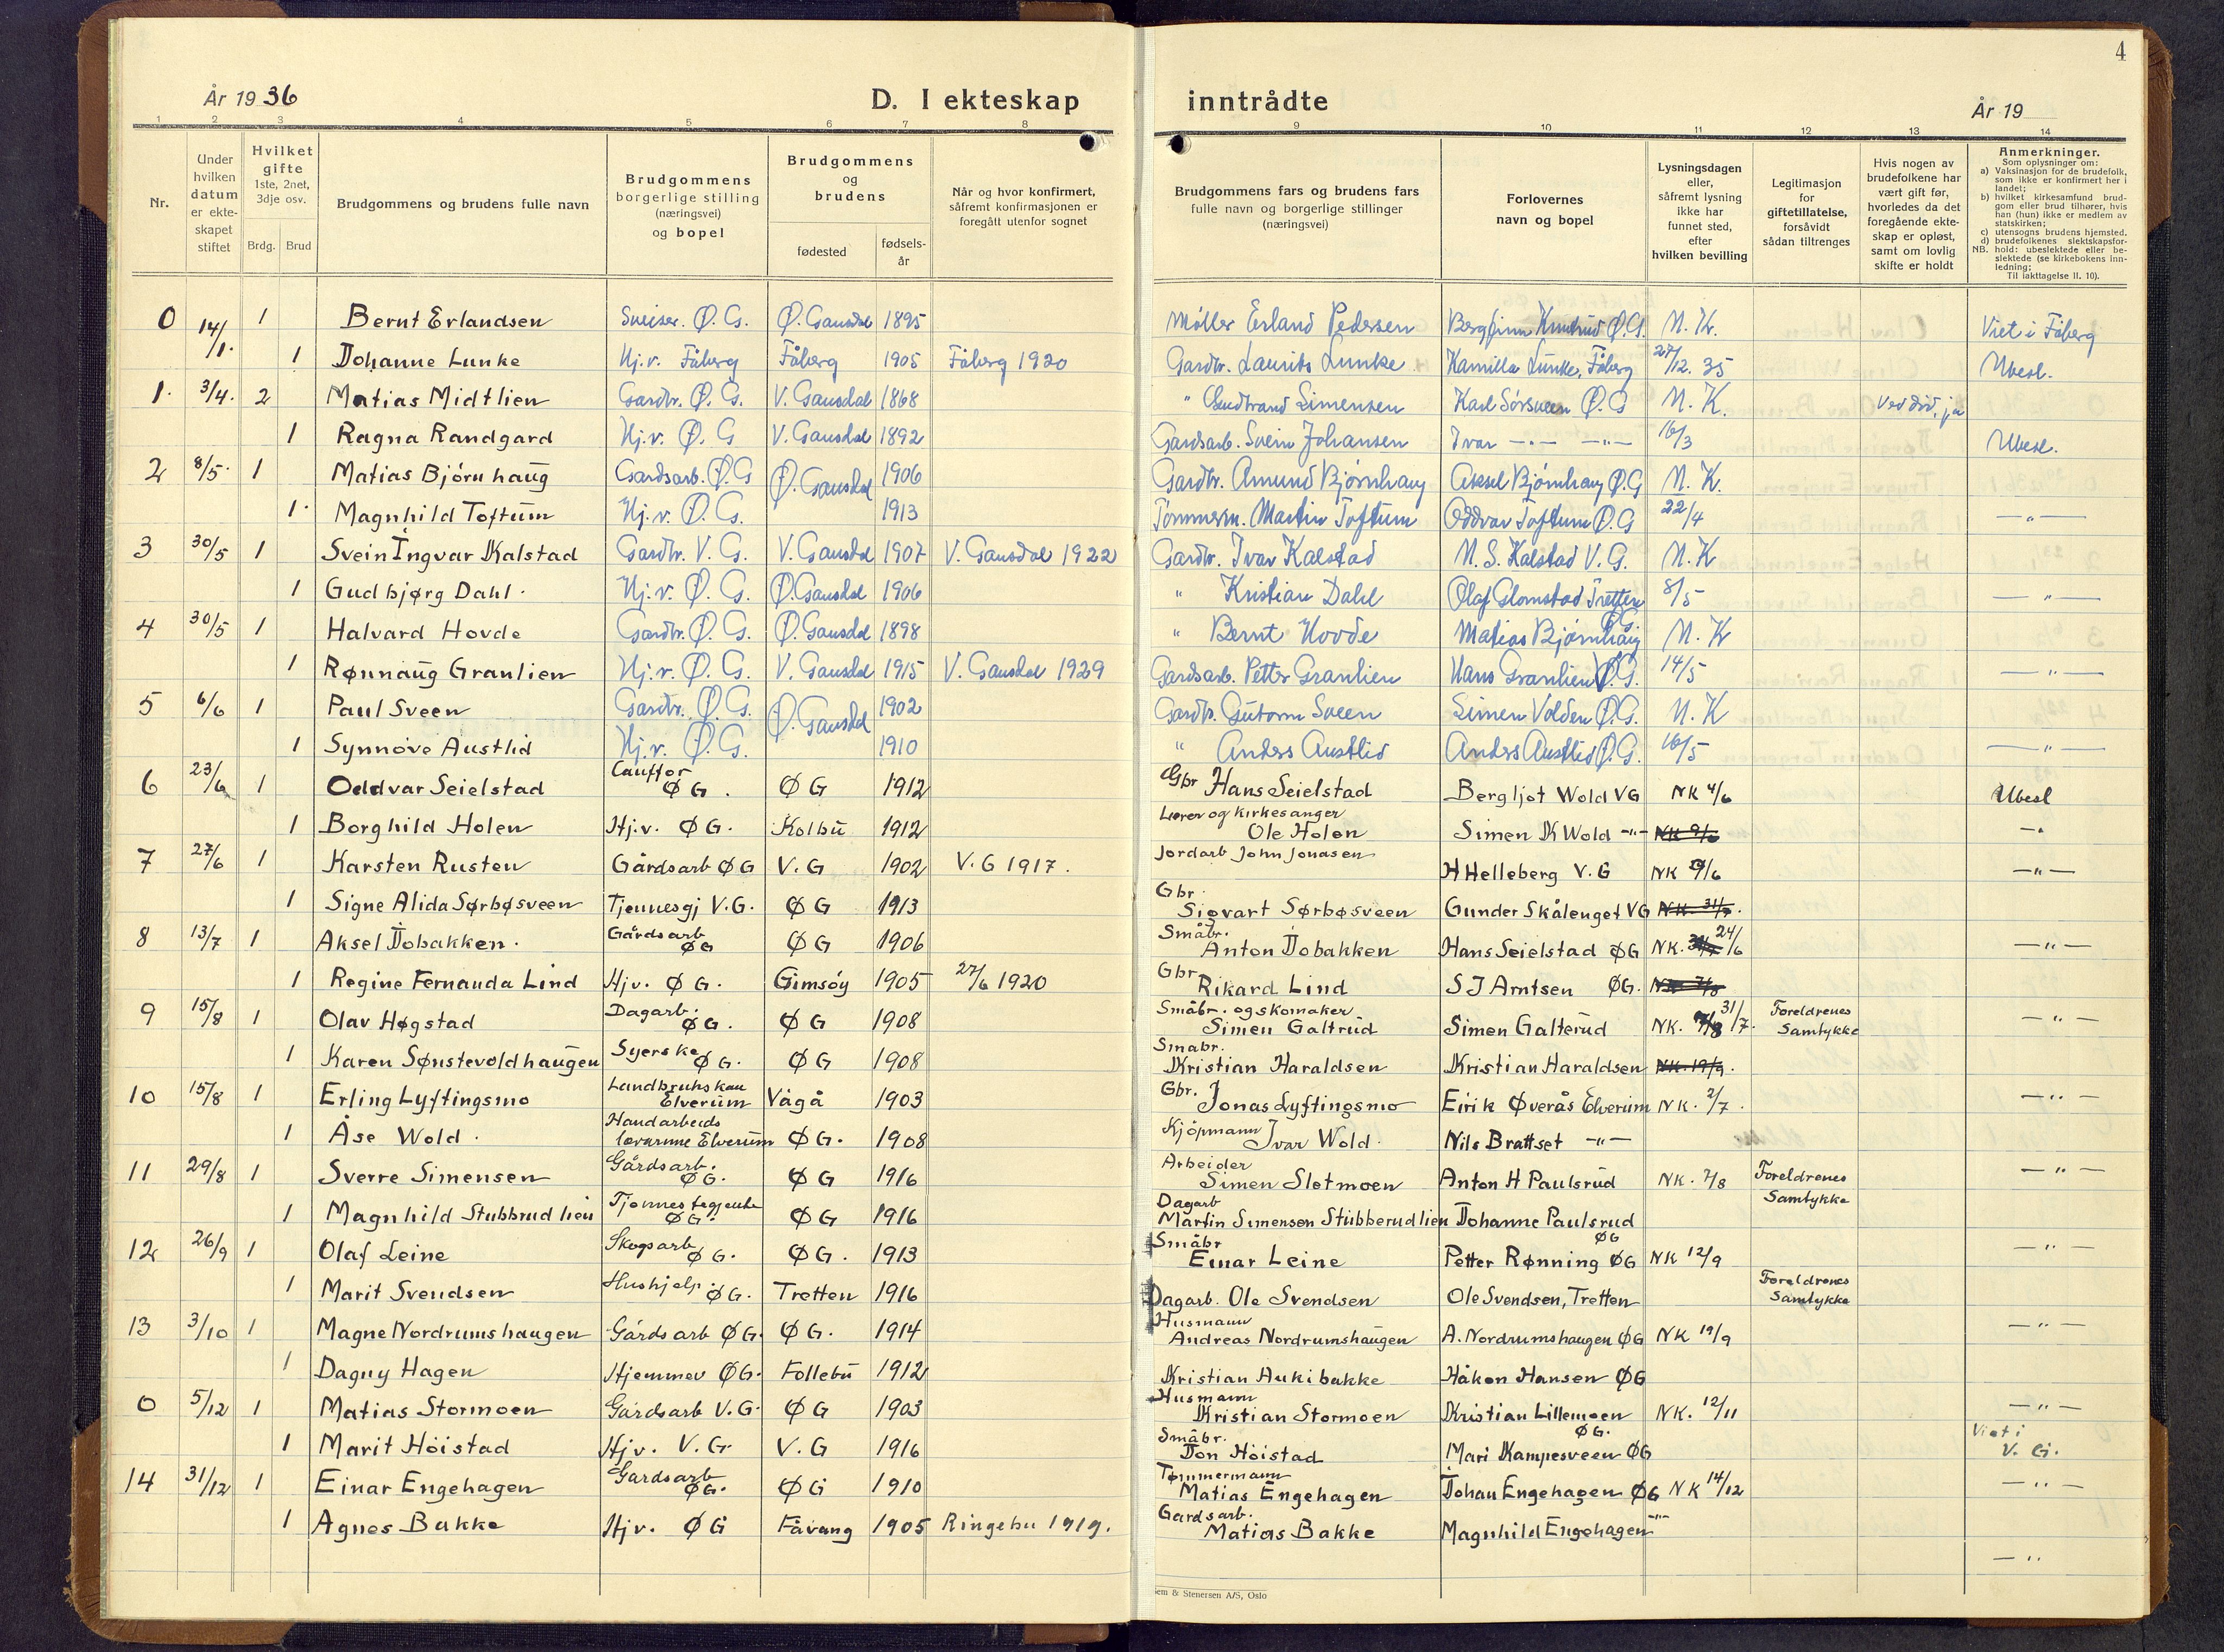 4
År 1936
D. I ekteskap inntrådte
År 19
1 2 3 4 5 6 7 8 9 10 11 12 13 14
Nr.
Under hvilken datum er ekte-skapet stiftet
Hvilket gifte 1ste, 2net, 3dje osv.
Brdg. Brud
Brudgommens og brudens fulle navn
Brudgommens borgerlige stilling (næringsvei) og bopel
Brudgommens og brudens
fødested
fødsels-år
Når og hvor konfirmert, såfremt konfirmasjonen er foregått utenfor sognet
Brudgommens fars og brudens fars fulle navn og borgerlige stillinger (næringsvei)
Forlovernes navn og bopel
Lysningsdagen eller, såfremt lysning ikke har funnet sted, efter hvilken bevilling
Legitimasjon for giftetillatelse, forsåvidt sådan tiltrenges
Hvis nogen av brudefolkene har vært gift før, hvorledes da det foregående ekte-skap er opløst, samt om lovlig skifte er holdt
Anmerkninger.
Som oplysninger om:
a) Vaksinasjon for de brudefolk, som ikke er konfirmert her i landet;
b) hvilket kirkesamfund brud-gom eller brud tilhører, hvis han (hun) ikke er medlem av statskirken;
c) utensogns brudens hjemsted.
d) brudefolkenes slektskapsfor-hold: ubeslektede eller be-slektede (se kirkebokens inn-ledning;
NB. Til iakttagelse II. 10).
0 14/1. 1 Bernt Erlandsen Sveiser. Ø. G. Ø. Gausdal 1895 Møller Erland Pedersen Bergfinn Knutrud Ø.G. N. K. Viet i Fåberg
1 Johanne Lunke Hj.v. Fåberg Fåberg 1905 Fåberg 1920 Gardbr. Laurits Lunke Kamilla Lunke, Fåberg 27/12. 35 Ubesl.
1. 3/4. 2 Matias Midtlien Gardbr. Ø. G. V. Gausdal 1868 " Gudbrand Simensen Karl Sørsveen Ø.G N. K. Ved død, ja
1 Ragna Randgard Hj.v. Ø. G V. Gausdal 1892 Gardsarb. Svein Johansen Ivar —"— —"— 16/3 Ubesl.
2 8/5. 1 Matias Bjørnhaug Gardsarb. Ø.G Ø. Gausdal 1906 Gardbr. Amund Bjørnhaug Aksel Bjørnhaug Ø.G N. K.
1. Magnhild Toftum Hj.v. Ø. G. 1913 Tømmerm. Martin Toftum Oddvar Toftum Ø.G 22/4 —"—
3 30/5 1 Svein Ingvar Kalstad Gardbr. V. G. V. Gausdal 1907 V. Gausdal 1922 Gardbr. Ivar Kalstad N. S. Kalstad V. G. N. K
1 Gudbjørg Dahl. Hj.v. Ø. G. Ø. Gausdal 1906 " Kristian Dahl Olaf Glomstad Tretten 8/5 —"—
4 30/5 1 Halvard Hovde Gardbr. Ø. G. Ø. Gausdal 1898 " Bernt Hovde Matias Bjørnhaug ØG N. K
1 Rønnaug Granlien Hj.v. Ø. G. V. Gausdal 1915 V. Gausdal 1929 Gardsarb. Petter Granlien Hans Granlien Ø.G. 14/5 —"—
5 6/6 1 Paul Sveen Gardbr. Ø. G. Ø. Gausdal 1902 Gardbr. Gutorm Sveen Simen Volden Ø.G. N. K
1 Synnøve Austlid Hj.v. Ø. G. 1910 " Anders Austlid Anders Austlid Ø.G. 16/5 —"—
6 23/6 1 Oddvar Seielstad ØG. ØG 1912 Gbr Hans Seielstad Bergljot Wold VG NK 4/6 Ubesl
1 Borghild Holen Hj.v. ØG. Kolbu 1912 Lærer og kirkesanger Ole Holen Simen K Wold —"— NK 9/6 —"
7 27/6 1 Karsten Rusten Gårdsarb ØG V. G 1902 V. G 1917. Jordarb John Jonasen H Helleberg V. G NK 9/6 —"—
1 Signe Alida Sørbøsveen Tjenneesgj V.G. ØG 1913 Gbr. Sigvart Sørbøsveen Gunder Skålenget VG
8 13/7 1 Aksel Jobakken. Gårdsarb ØG ØG 1906 Småbr. Anton Jobakken Hans Seielstad ØG NK. 24/6 —"—
1 Regine Fernanda Lind Hjv. ØG. Gimsøy 1905 27/6 1920 Gbr Rikard Lind S J Arntsen ØG.
9 15/8 1 Olav Høgstad Dagarb. ØG. ØG 1908 Småbr. og skomaker Simen Galtrud Simen Galterud NK. 31/7. Foreldrenes Samtykke —"—
1 Karen Sønstevoldhaugen Syerske ØG. ØG 1908 Småbr. Kristian Haraldsen Kristian Haraldsen
10 15/8 1 Erling Lyftingsmo Elverum Vågå 1903 Gbr. Jonas Lyftingsmo Eirik Øverås Elverum NK. 2/7. —"—
1 Åse Wold. Handarbeids lærarinne Elverum ØG. 1908 Kjøpmann Ivar Wold. Nils Brattset —"—
11 29/8 1 Sverre Simensen Gårdsarb. ØG. ØG 1916 Arbeider Simen Sletmoen Anton H Paulsrud NK. 7/8 Foreldrenes Samtykke —"—
1 Magnhild Stubbrudlien Tjennestegjente ØG. ØG 1916 Dagarb Martin Simensen Stubberudlien Johanne Paulsrud ØG
12 26/9 1 Olaf Leine Skogsarb ØG. ØG. 1913 Småbr Einar Leine Petter Rønning ØG NK 12/9 —"—
1 Marit Svendsen Hushjelp ØG. Tretten 1916 Dagarb. Ole Svendsen Ole Svendsen, Tretten Foreldrenes Samtykke
13 3/10 1 Magne Nordrumshaugen Gårdsarb ØG. ØG. 1914 Husmann Andreas Nordrumshaugen A. Nordrumshaugen ØG NK 19/9 —"—
1 Dagny Hagen Hjemmev ØG. Follebu 1912 Kristian Aukibakke Håkon Hansen ØG
0 5/12 1 Matias Stormoen Gårdsarb V.G. ØG 1903 Husmann Kristian Stormoen Kristian Lillemoen ØG. NK. 12/11 —"—
1 Marit Høistad Hjv. V. G. V. G 1916 Småbr. Jon Høistad Mari Kampesveen ØG Viet i V. G.
14 31/12 1 Einar Engehagen Gardsarb ØG. ØG 1910 Tømmermann Matias Engehagen Johan Engehagen ØG NK 14/12 —"—
1 Agnes Bakke Hjv. ØG Fåvang 1905 Ringebu 1919. Gardsarb. Matias Bakke Magnhild Engehagen —"—
—"
em & Stenersen A/S, Oslo